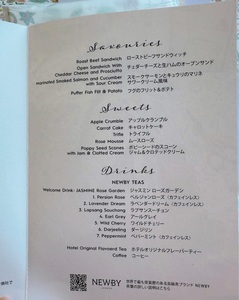 Savouries
Roast Beef Sandwich ローストビーフサンドウィッチ
Open Sandwich With チェダーチーズと生ハムのオープンサンド
Cheddar Cheese and Prosciutto
Marinated Smoked Salmon and Cucumber スモークサーモンとキュウリのマリネ
with Sour Cream サワークリーム風味
Puffer Fish Fill & Potato フグのフリット&ポテト
Sweets
Apple Crumble アップルクランブル
Carrot Cake キャロットケーキ
Trifle トライフル
Rose Mousse ムースローズ
Poppy Seed Scones ポピーシードのスコーン
with Jam & Clotted Cream ジャム&クロテッドクリーム
Drinks
NEWBY TEAS
Welcome Drink: JASMINE Rose Garden ジャスミン ローズガーデン
1. Persian Rose ペルシャンローズ (カフェインレス)
2. Lavender Dream ラベンダードリーム (カフェインレス)
3. Lapsang Souchong ラプサンスーチョン
4. Earl Grey アールグレイ
5. Wild Cherry ワイルドチェリー
6. Darjeeling ダージリン
7. Peppermint ペパーミント (カフェインレス)
Hotel Original Flavored Tea ホテルオリジナルフレーバーティー
Coffee コーヒー
NEWBY
世界で最も受賞歴のある高級茶ブランド NEWBY